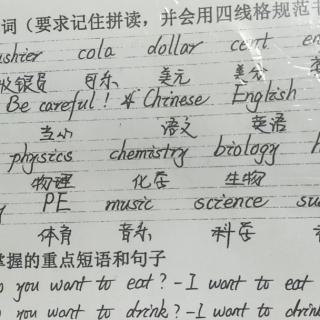 词（要求记住拼读，并会用四线格规范
cola dollar cent
收银员 可乐 美元 美分
Be careful! * Chinese English
当心 语文 英语
physics chemistry biology
物理 化学 生物
PE music science
体育 音乐 科学
掌握的重点短语和句子
you want to eat? - I want to eat
you want to drink? - I want to drink